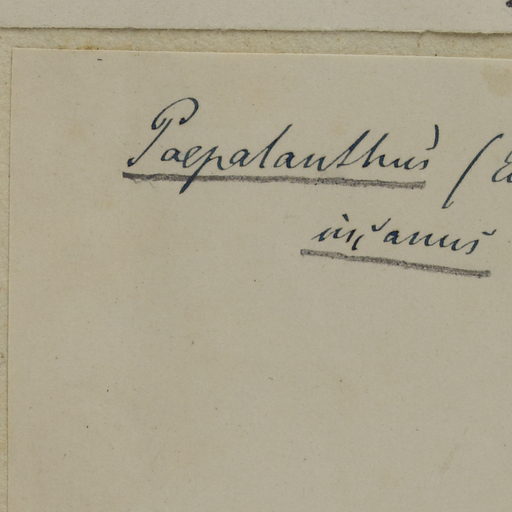 Paepalanthus (
incanus